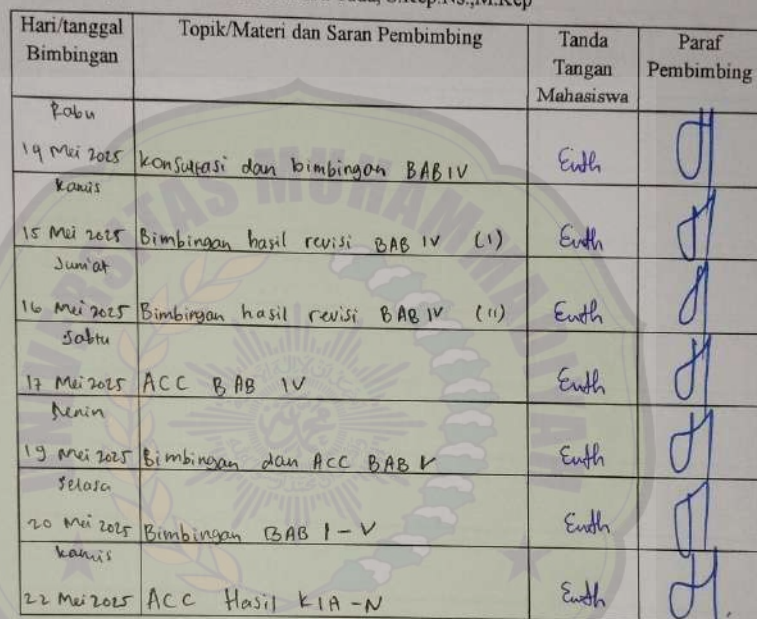 S.Kep.Ns.,M.Kep
Hari/tanggal Bimbingan
Topik/Materi dan Saran Pembimbing
Tanda Tangan Mahasiswa
Paraf Pembimbing
Rabu
19 Mei 2025 konsultasi dan bimbingan BAB IV
kamis
15 Mei 2025 Bimbingan hasil revisi BAB IV (I)
Jum'at
16 Mei 2025 Bimbingan hasil revisi BAB IV (II)
Sabtu
17 Mei 2025 ACC BAB IV
Senin
19 Mei 2025 Bimbingan dan ACC BAB V
Selasa
20 Mei 2025 Bimbingan BAB I - V
kamis
22 Mei 2025 ACC Hasil KIA-N
UNIVERSITAS MUHAMMADIYAH